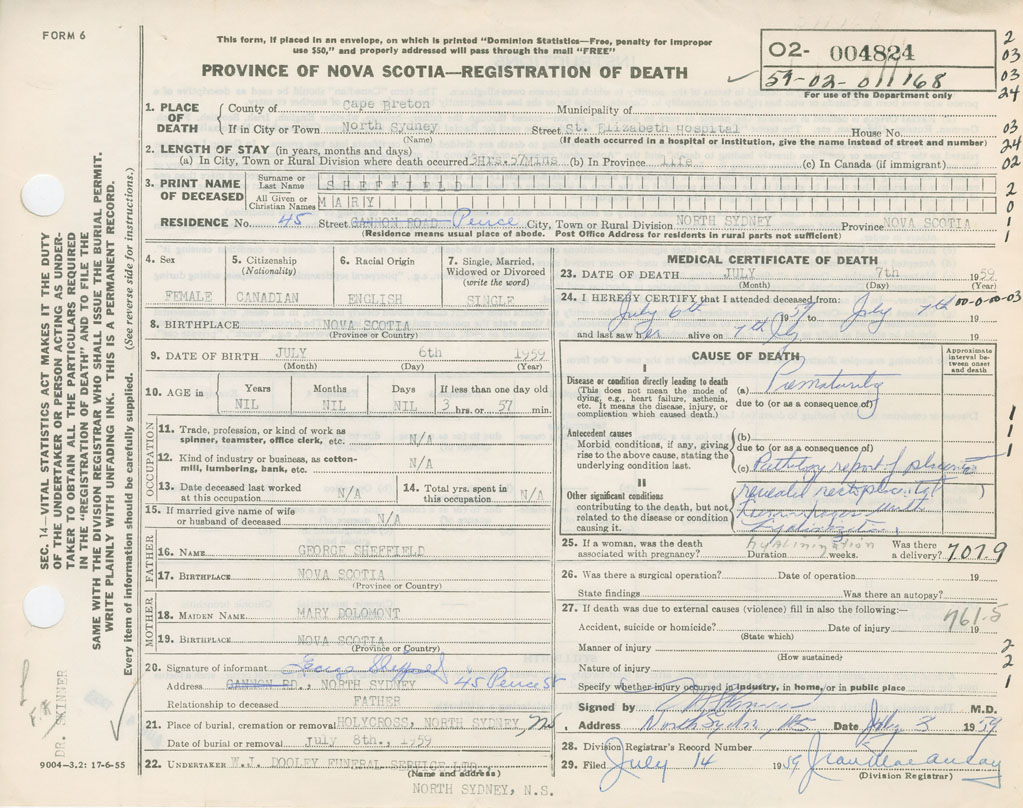 FORM 6
This form, if placed in an envelope, on which is printed "Dominion Statistics—Free, penalty for improper
use $50," and properly addressed will pass through the mail "FREE"
PROVINCE OF NOVA SCOTIA—REGISTRATION OF DEATH
02- 004824
59-02-011168
For use of the Department only
2
03
03
24
03
24
02
2
0
1
1
1. PLACE OF DEATH
County of Cape Breton Municipality of
If in City or Town North Sydney Street St. Elizabeth Hospital House No.
(Name) (If death occurred in a hospital or institution, give the name instead of street and number)
2. LENGTH OF STAY (in years, months and days)
(a) In City, Town or Rural Division where death occurred 3Hrs.57Mins (b) In Province life (c) In Canada (if immigrant)
3. PRINT NAME OF DECEASED
Surname or Last Name SHEFFIELD
All Given or Christian Names MARY
RESIDENCE No. 45 Street GANNON ROAD Peirce City, Town or Rural Division NORTH SYDNEY Province NOVA SCOTIA
(Residence means usual place of abode. Post Office Address for residents in rural parts not sufficient)
4. Sex
FEMALE
5. Citizenship
(Nationality)
CANADIAN
6. Racial Origin
ENGLISH
7. Single, Married,
Widowed or Divorced
(write the word)
SINGLE
8. BIRTHPLACE NOVA SCOTIA
(Province or Country)
9. DATE OF BIRTH JULY 6th 1959
(Month) (Day) (Year)
10. AGE in
Years Months Days If less than one day old
NIL NIL NIL 3 hrs. or 57 min.
OCCUPATION
11. Trade, profession, or kind of work as
spinner, teamster, office clerk, etc. N/A
12. Kind of industry or business, as cotton-
mill, lumbering, bank, etc. N/A
13. Date deceased last worked
at this occupation N/A
14. Total yrs. spent in
this occupation N/A
15. If married give name of wife
or husband of deceased N/A
FATHER
16. NAME GEORGE SHEFFIELD
17. BIRTHPLACE NOVA SCOTIA
(Province or Country)
MOTHER
18. MAIDEN NAME MARY DOLOMONT
19. BIRTHPLACE NOVA SCOTIA
(Province or Country)
20. Signature of informant George Sheffield
Address GANNON RD., NORTH SYDNEY 45 Peirce St
Relationship to deceased FATHER
21. Place of burial, cremation or removal HOLYCROSS, NORTH SYDNEY,
Date of burial or removal July 8th., 1959
22. UNDERTAKER W.J. DOOLEY FUNERAL SERVICE LTD.
(Name and address)
NORTH SYDNEY, N.S.
MEDICAL CERTIFICATE OF DEATH
23. DATE OF DEATH JULY 7th 1959
(Month) (Day) (Year)
24. I HEREBY CERTIFY that I attended deceased from:
July 6th 1959 to July 7th 00-0-00-03
and last saw her alive on 7th Jly 19
CAUSE OF DEATH
Approximate
interval be-
tween onset
and death
I
Disease or condition directly leading to death
(This does not mean the mode of
dying, e.g., heart failure, asthenia,
etc. It means the disease, injury, or
complication which caused death.)
(a) Prematurity
due to (or as a consequence of)
Antecedent causes
Morbid conditions, if any, giving
rise to the above cause, stating the
underlying condition last.
(b)
due to (or as a consequence of)
(c) Pathology report of placenta
II
Other significant conditions
contributing to the death, but not
related to the disease or condition
causing it.
revealed retroplacental
1
1
1
25. If a woman, was the death
associated with pregnancy? Duration weeks. Was there
a delivery? 7079
26. Was there a surgical operation? Date of operation 19
State findings Was there an autopsy?
27. If death was due to external causes (violence) fill in also the following:—
761.5
Accident, suicide or homicide? Date of injury 19
(State which)
Manner of injury
(How sustained)
Nature of injury
Specify whether injury occurred in industry, in home, or in public place
2
2
1
Signed by M.D.
Address North Sydney, NS Date July 3 1959
28. Division Registrar's Record Number
29. Filed July 14 1959
(Division Registrar)
SEC. 14—VITAL STATISTICS ACT MAKES IT THE DUTY
OF THE UNDERTAKER OR PERSON ACTING AS UNDER-
TAKER TO OBTAIN ALL THE PARTICULARS REQUIRED
IN THE "REGISTRATION OF DEATH" AND TO FILE THE
SAME WITH THE DIVISION REGISTRAR WHO SHALL ISSUE THE BURIAL PERMIT.
WRITE PLAINLY WITH UNFADING INK. THIS IS A PERMANENT RECORD.
Every item of information should be carefully supplied. (See reverse side for instructions.)
DR. SKINNER
9004—3.2: 17-6-55